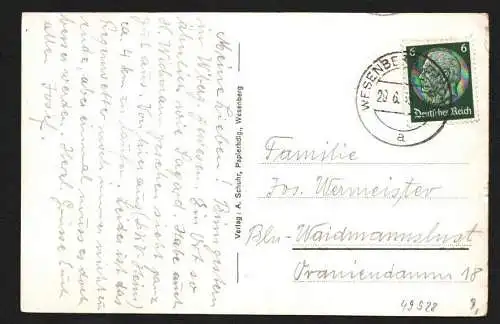 Meine Lieben! Bin gestern
im Wbzg. gewesen. Ein Ort so
ähnlich wie Sagard. Habe auch
H. Wichmann sieht ganz
gut aus. Von hier aus
ca. 4 km zu laufen. Leider ist das
Regenwetter noch immer nicht zu
ende, aber einmal muss es doch
besser werden. Herzl. Grüsse Euch
allen Josef.
Verlag: A. Schuhr, Papierhdlg., Wesenberg
WESENBE
29.6.
a
6 6
Deutsches Reich
Familie
Jos. Wermeister
Bln-Waidmannslust
Oraniendamm 18
49528